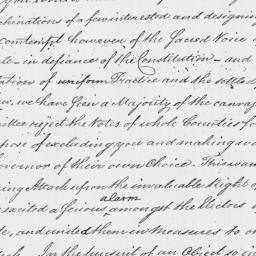 chinations of a few interested and designing
contempt however of the Sacred Voice
le – in defiance of the Constitution – and
ation of uniform Practice and the settled
w, we have seen a Majority of the canvas
ittee reject the Votes of whole Counties fo
pose of excluding you and making w
overnor of their own Choice. This wan
ing Attack upon the invaluable Right of
alarm
excited a serious amongst the Electors
le, and united them in Measures to o
In the pursuit of an Object so in